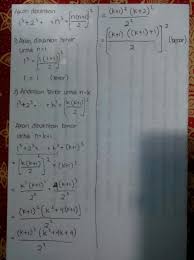 Akan dibuktikan
1³+2³+ ... +n³ = [n(n+1)/2]²
1) Akan dibuktikan benar
untuk n=1
1³ = [1(1+1)/2]²
1 = 1 (benar)
2) Andaikan benar untuk n=k
1³+2³+ ... +k³ = [k(k+1)/2]²
Akan dibuktikan benar
untuk n=k+1
1³+2³+ ... +k³+(k+1)³
= [k(k+1)/2]² + (k+1)³
= (k+1)²[k²+4(k+1)] / 2²
= (k+1)²(k²+4k+4) / 2²
= (k+1)²(k+2)² / 2²
= [(k+1)((k+1)+1)/2]² (benar)